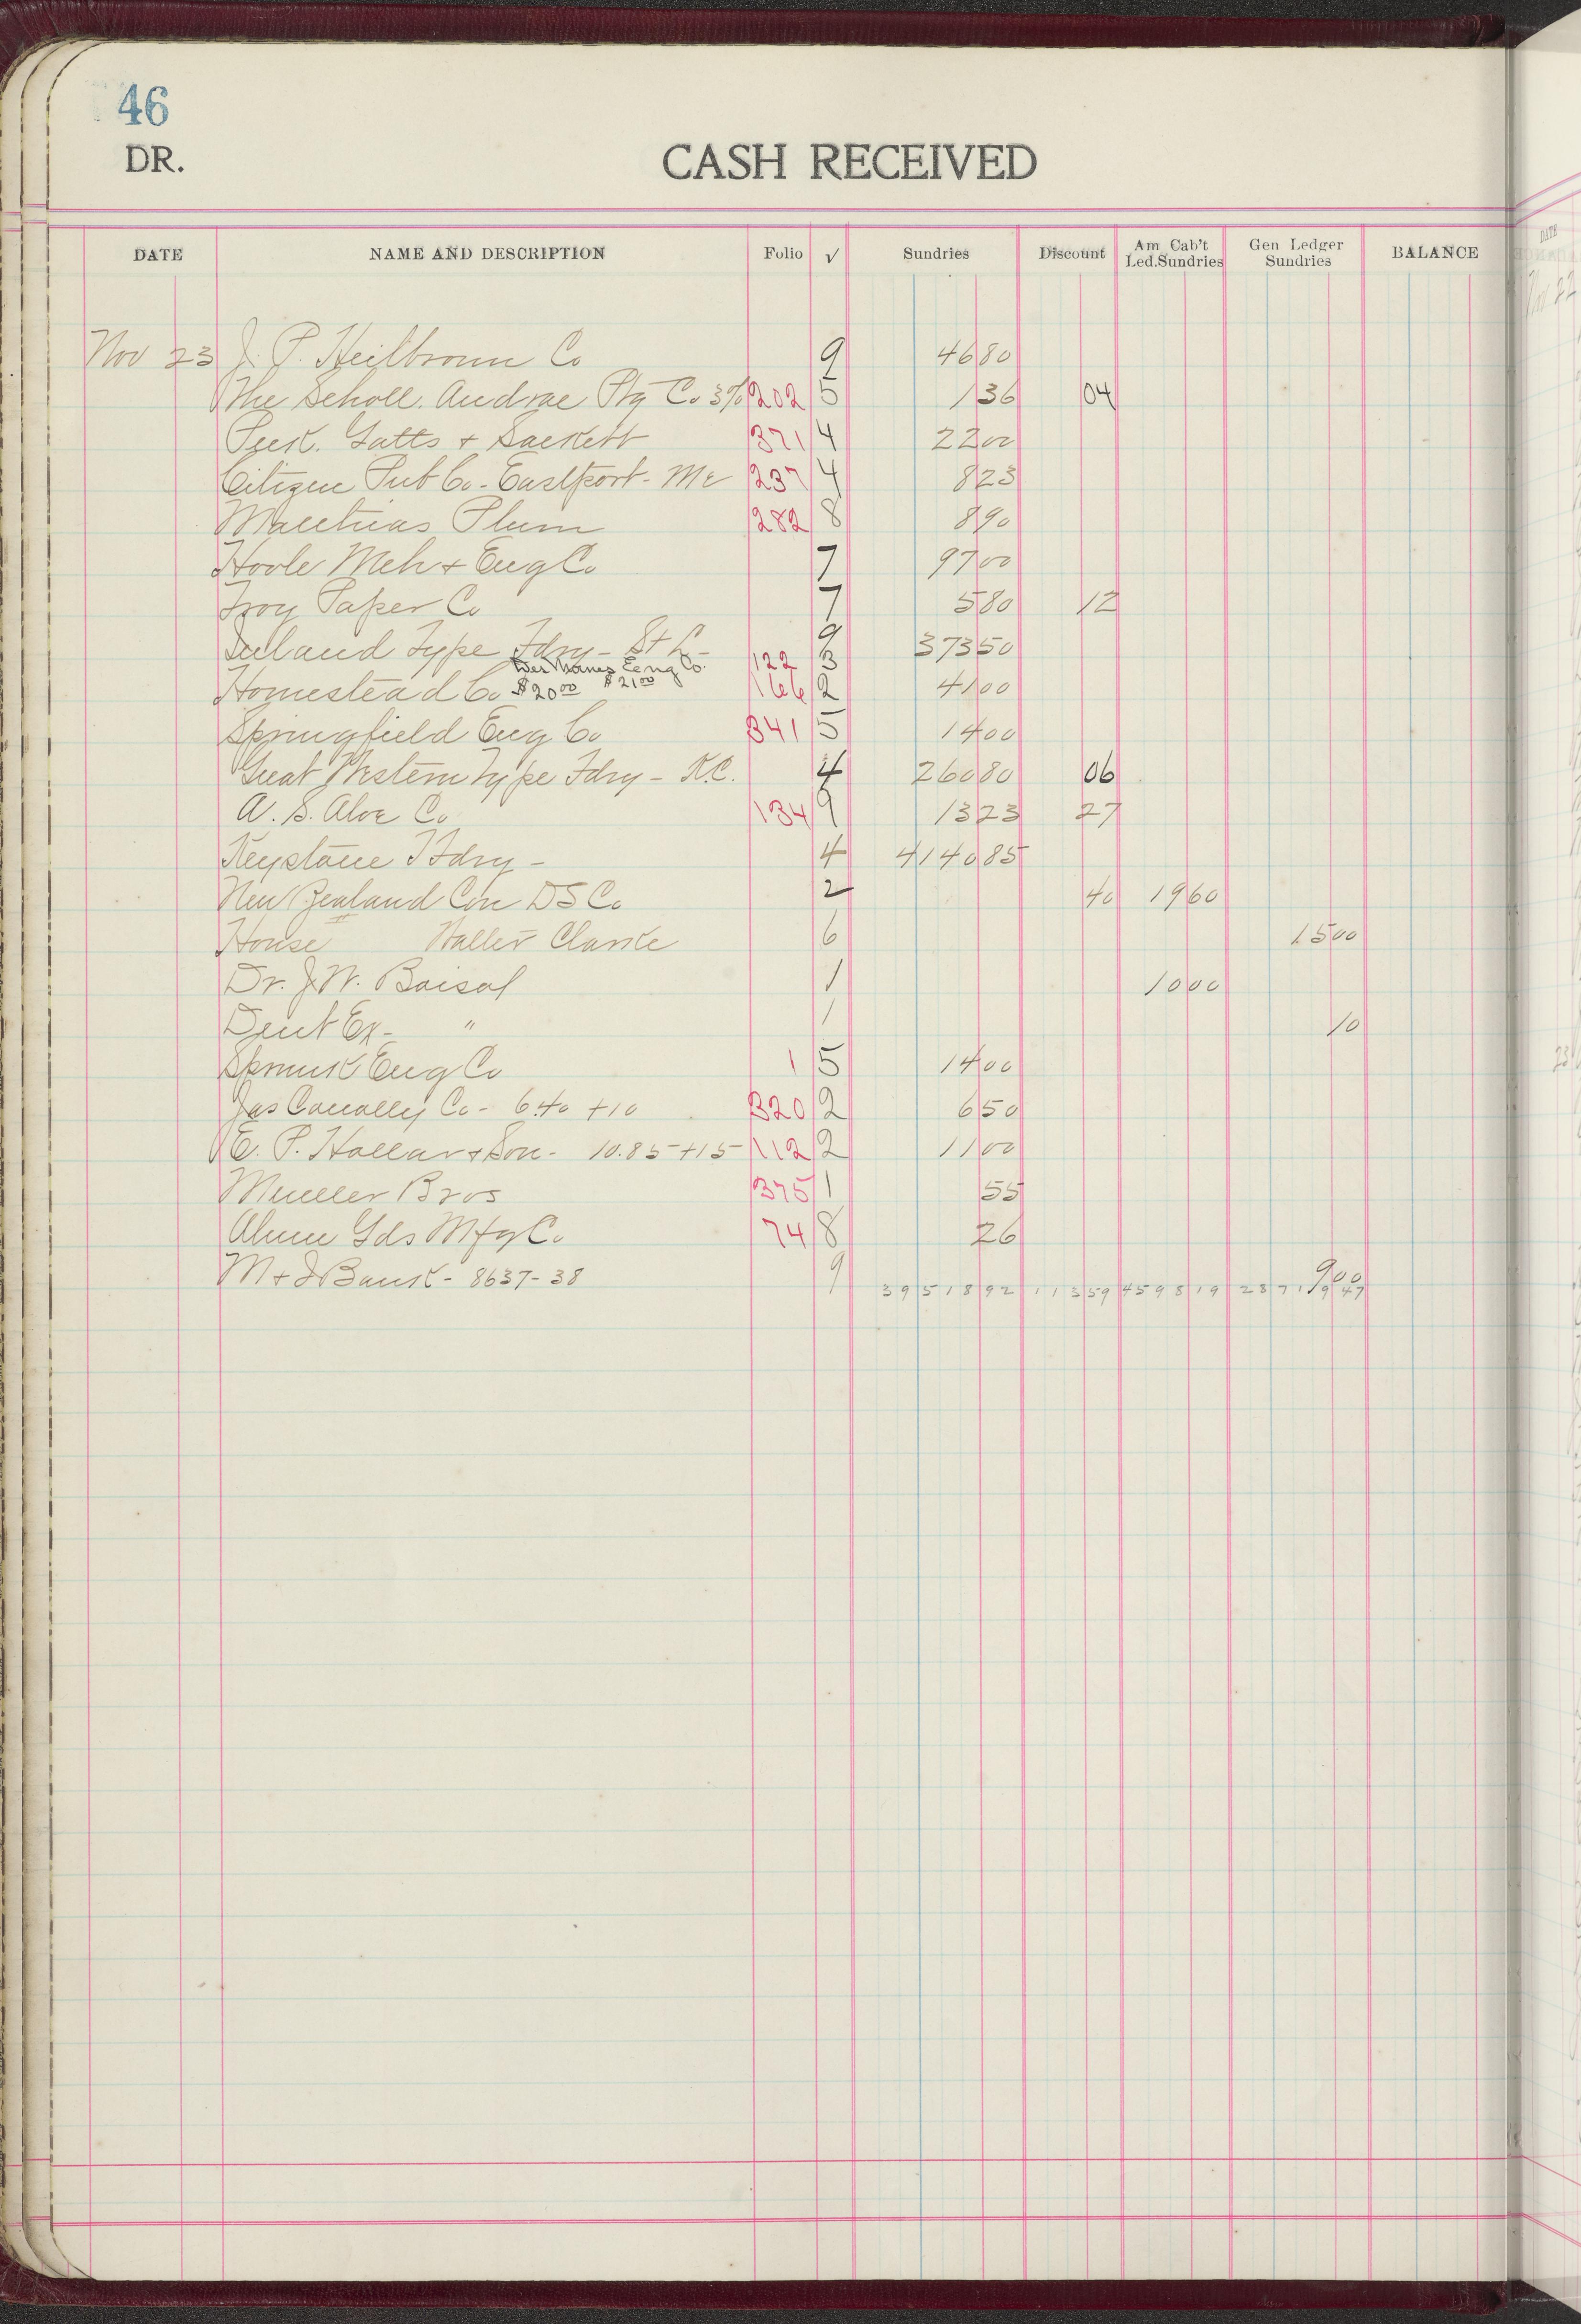 46
DR. CASH RECEIVED
DATE NAME AND DESCRIPTION Folio √ Sundries Discount Am Cab't Led.Sundries Gen Ledger Sundries BALANCE
Nov 23 J. P. Heilbronn Co 9 46 80
The Scholl. Andrae Ptg Co 3% 202 5 1 36 04
Peck. & Sackett 371 4 22 00
Citizen Pub Co. Eastport. Me 237 4 8 23
Matthias Plum 282 8 8 90
Hoole Mch & Eng Co 7 97 00
Troy Paper Co 7 5 80 12
Inland Type Fdry - St L - 9 373 50
Des Moines Eng Co. 122 3
Homestead Co $20 00 $21 00 166 2 41 00
Springfield Eng Co 341 5 14 00
Great Western Type Fdry - K.C. 4 260 80 06
A. S. Aloe Co 134 9 13 23 27
Keystone T Fdry - 4 4140 85
New Zealand Con DS Co 2 40 19 60
House II Walter Clarke 6 15 00
Dr. J. W. 1 10 00
Dent Ex - " 1 10
Eng Co 1 5 14 00
Jas Conolly Co - 6.40 + 10 320 2 6 50
E. P. Hollar & Son - 10.85 + 15 112 2 11 00
Mueller Bros 375 1 55
Alum Gds Mfg Co 74 8 26
M & J Bank - 8637-38 9 9 00
39518 92 113 59 4598 19 23719 47